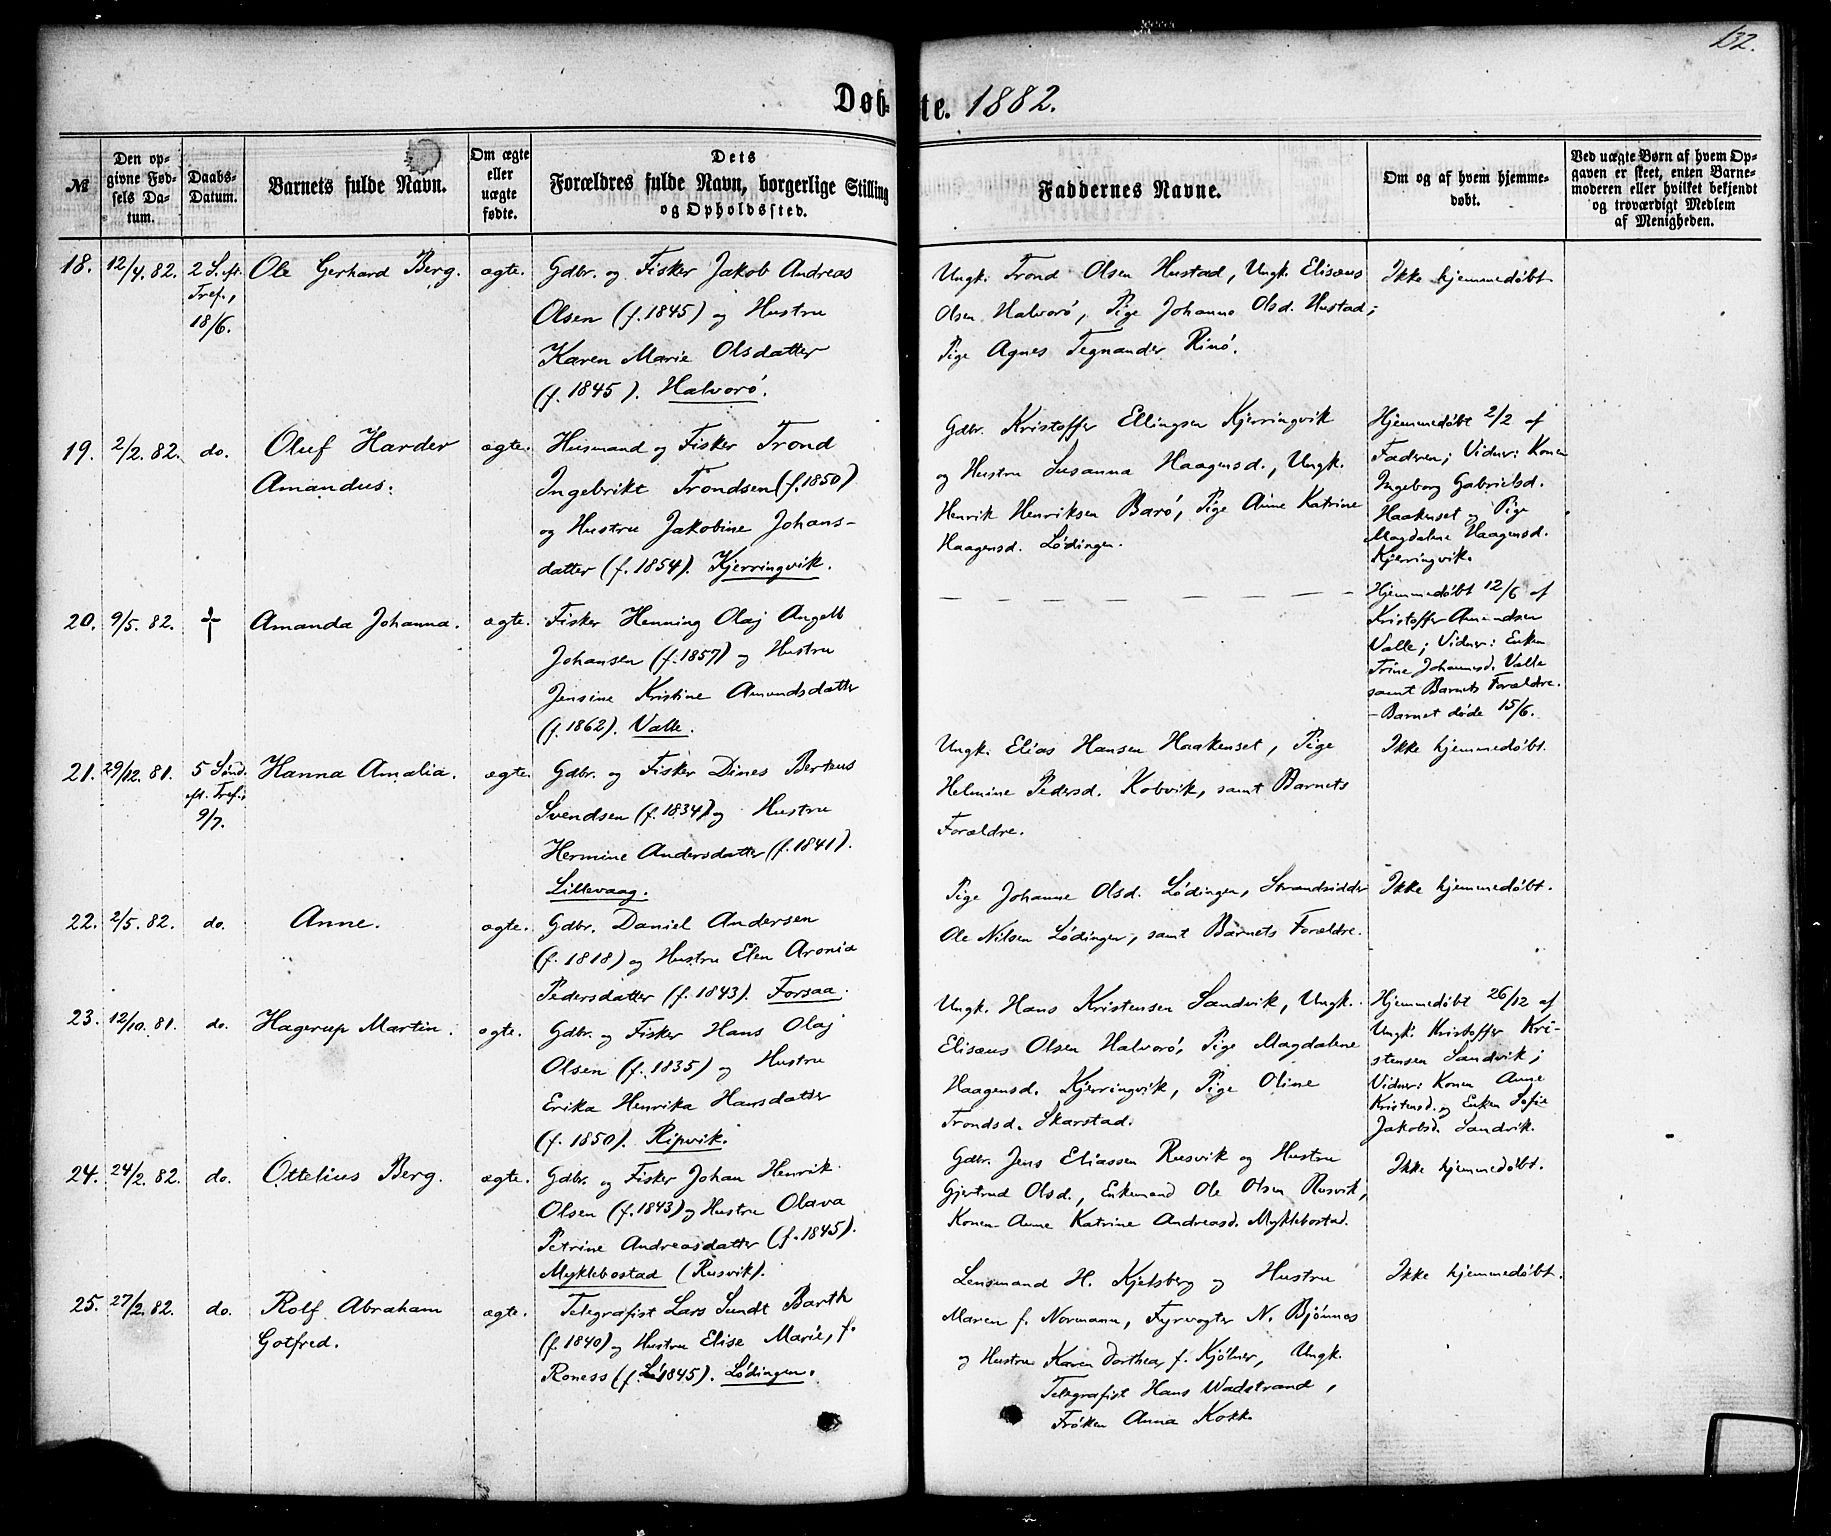 132.
Døbte. 1882.
№
Den opgivne Fødsels Datum.
Daabs-Datum.
Barnets fulde Navn.
Om ægte eller uægte fødte.
Dets Forældres fulde Navn, borgerlige Stilling og Opholdssted.
Faddernes Navne.
Om og af hvem hjemmedøbt.
Ved uægte Børn af hvem Opgaven er skeet, enten Barnemoderen eller hvilket bekjendt og troværdigt Medlem af Menigheden.
18. 12/4. 82. 2 S. eft. Tref., 18/6. Ole Gerhard Berg. ægte.
Gdbr. og Fisker Jakob Andreas
Olsen (f. 1845) og Hustru
Karen Marie Olsdatter
(f. 1845). Halvorö.
Ungk. Trond Olsen Hustad, Ungk. Elisæus
Olsen Halvorö, Pige Johanne Olsd. Hustad;
Pige Agnes Tegnander Rinö.
Ikke hjemmedøbt.
19. 2/2. 82. do. Oluf Harder
Amandus. ægte.
Husmand og Fisker Trond
Ingebrikt Trondsen (f. 1850)
og Hustru Jakobine Johans-
datter (f. 1854). Kjerringvik.
Gdbr. Kristoffer Ellingsen Kjerringvik
og Hustru Susanna Haagensd., Ungk.
Henrik Henriksen Barö, Pige Anne Katrine
Haagensd. Lödingen.
Hjemmedöbt 2/2 af
Faderen; Vidner: Konen
Ingeborg Gabrielsd.
Haakenset og Pige
Magdalene Haagensd.
Kjerringvik.
20. 9/5. 82. † Amanda Johanna. ægte.
Fisker Henning Olaj Angell
Johansen (f. 1857) og Hustru
Jensine Kristine Amundsdatter
(f. 1862). Valle.
— — — — — — — — — —
Hjemmedöbt 12/6 af
Kristoffer Amundsen
Valle; Vidner: Enken
Trine Johannesd. Valle
samt Barnets Forældre.
– Barnet döde 15/6.
21. 29/12. 81. 5 Sönd. eft. Tref.: 9/7. Hanna Amalia. ægte.
Gdbr. og Fisker Dines Berteus
Svendsen (f. 1834) og Hustru
Hermine Andersdatter (f. 1841).
Lillevaag.
Ungk. Elias Hansen Haakenset, Pige
Helmine Pedersd. Kobvik, samt Barnets
Forældre.
Ikke hjemmedöbt.
22. 2/5. 82. do. Anne. ægte.
Gdbr. Daniel Andersen
(f. 1818) og Hustru Elen Aronia
Pedersdatter (f. 1843). Forsaa.
Pige Johanne Olsd. Lödingen, Strandsidder
Ole Nilsen Lödingen, samt Barnets Forældre.
Ikke hjemmedöbt.
23. 12/10. 81. do. Hagerup Martin. ægte.
Gdbr. og Fisker Hans Olaj
Olsen (f. 1835) og Hustru
Erika Henrika Hansdatter
(f. 1850). Ripvik.
Ungk. Hans Kristensen Sandvik, Ungk.
Elisæus Olsen Halvorö, Pige Magdalene
Haagensd. Kjerringvik, Pige Oline
Trondsd. Skarstad.
Hjemmedöbt 26/12 af
Ungk. Kristoffer Kri-
stensen Sandvik;
Vidner: Konen Anne
Kristensd. og Enken Sofie
Jakobsd. Sandvik.
24. 24/2. 82. do. Ottelius Berg. ægte.
Gdbr. og Fisker Johan Henrik
Olsen (f. 1843) og Hustru Olava
Petrine Andreasdatter (f. 1845).
Myklebostad (Rusvik).
Gdbr. Jens Eliassen Rusvik og Hustru
Gjertrud Olsd., Enkemand Ole Olsen Rusvik,
Konen Anne Katrine Andreasd. Myklebostad.
Ikke hjemmedöbt.
25. 27/2. 82. do. Rolf Abraham
Gotfred. ægte.
Telegrafist Lars Sundt Barth
(f. 1840) og Hustru Elise Marie, f.
Roness (f. 1845). Lödingen.
Lensmand H. Kjelsberg og Hustru
Maren f. Normann, Fyrvogter N. Bjönnes
og Hustru Karen Dorthea f. Kjölner, Ungk.
Telegrafist Hans Wadstrand,
Fröken Anna Kokk.
Ikke hjemmedöbt.